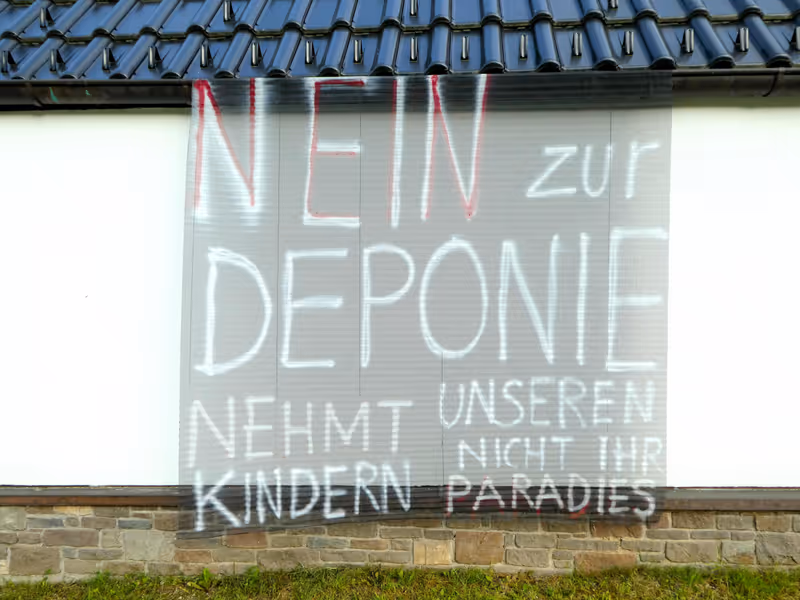 NEIN zur
DEPONIE
NEHMT UNSEREN
KINDERN NICHT IHR
PARADIES